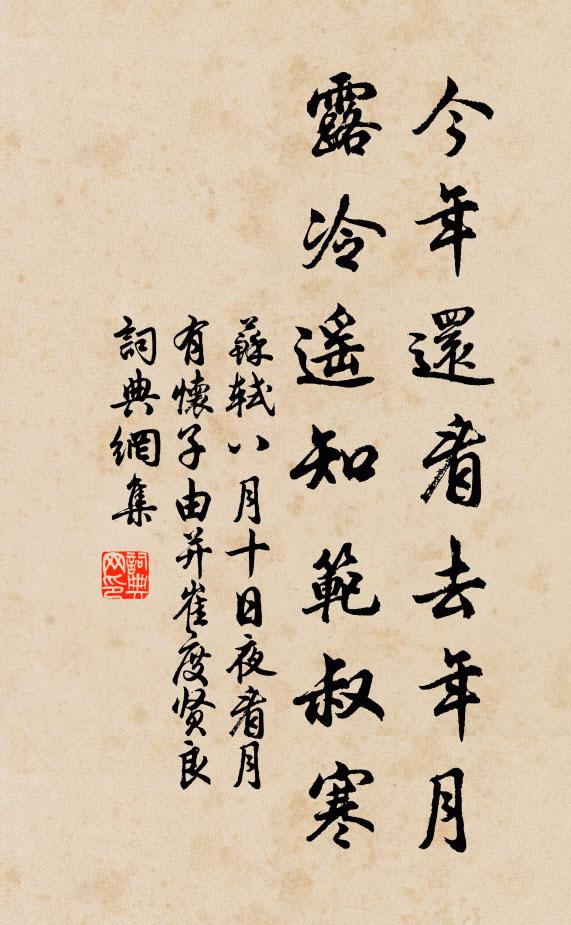 今年還看去年月
露冷遥知範叔寒
蘇軾八月十日夜看月
有懷子由并崔度贤良
詞典網集
詞典网印